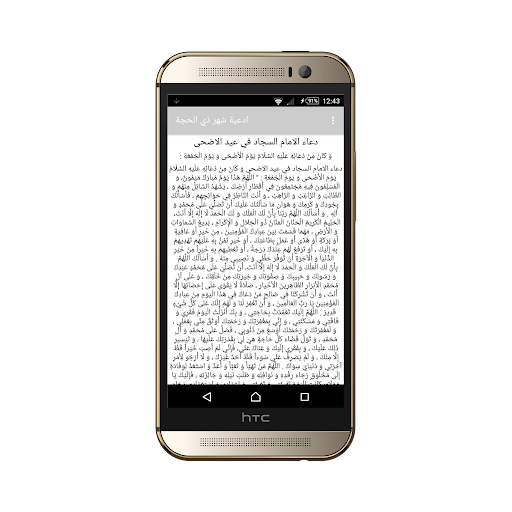 91% 12:43
ادعية شهر ذي الحجة
دعاء الامام السجاد في عيد الاضحى
وَ كَانَ مِنْ دُعَائِهِ عَلَيْهِ السَّلَامُ يَوْمَ الْأَضْحَى وَ يَوْمَ الْجُمُعَةِ :
دعاء الامام السجاد في عيد الاضحى و كَانَ مِنْ دُعَائِهِ عَلَيْهِ السَّلَامُ
يَوْمَ الْأَضْحَى وَ يَوْمَ الْجُمُعَةِ : " اللَّهُمَّ هَذَا يَوْمٌ مُبَارَكٌ مَيْمُونٌ، وَ
الْمُسْلِمُونَ فِيهِ مُجْتَمِعُونَ فِي أَقْطَارِ أَرْضِكَ ، يَشْهَدُ السَّائِلُ مِنْهُمْ وَ
الطَّالِبُ وَ الرَّاغِبُ وَ الرَّاهِبُ وَ أَنْتَ النَّاظِرُ فِي حَوَائِجِهِمْ ، فَأَسْأَلُكَ
بِجُودِكَ وَ كَرَمِكَ وَ هَوَانِ مَا سَأَلْتُكَ عَلَيْكَ أَنْ تُصَلِّيَ عَلَى مُحَمَّدٍ وَ
آلِهِ . وَ أَسْأَلُكَ اللَّهُمَّ رَبَّنَا بِأَنَّ لَكَ الْمُلْكَ وَ لَكَ الْحَمْدَ لَا إِلَهَ إِلَّا أَنْتَ،
الْحَلِيمُ الْكَرِيمُ الْحَنَّانُ الْمَنَّانُ ذُو الْجَلَالِ وَ الْإِكْرَامِ ، بَدِيعُ السَّمَاوَاتِ
وَ الْأَرْضِ ، مَهْمَا قَسَمْتَ بَيْنَ عِبَادِكَ الْمُؤْمِنِينَ ، مِنْ خَيْرٍ أَوْ عَافِيَةٍ
أَوْ بَرَكَةٍ أَوْ هُدًى أَوْ عَمَلٍ بِطَاعَتِكَ ، أَوْ خَيْرٍ تَمُنُّ بِهِ عَلَيْهِمْ تَهْدِيهِمْ
بِهِ إِلَيْكَ ، أَوْ تَرْفَعُ لَهُمْ عِنْدَكَ دَرَجَةً ، أَوْ تُعْطِيهِمْ بِهِ خَيْراً مِنْ خَيْرِ
الدُّنْيَا وَ الْآخِرَةِ أَنْ تُوَفِّرَ حَظِّي وَ نَصِيبِي مِنْهُ . وَ أَسْأَلُكَ اللَّهُمَّ
بِأَنَّ لَكَ الْمُلْكَ وَ الْحَمْدَ لَا إِلَهَ إِلَّا أَنْتَ، أَنْ تُصَلِّيَ عَلَى مُحَمَّدٍ عَبْدِكَ
وَ رَسُولِكَ وَ حَبِيبِكَ وَ صَفْوَتِكَ وَ خِيَرَتِكَ مِنْ خَلْقِكَ ، وَ عَلَى آلِ
مُحَمَّدٍ الْأَبْرَارِ الطَّاهِرِينَ الْأَخْيَارِ ، صَلَاةً لَا يَقْوَى عَلَى إِحْصَائِهَا إِلَّا
أَنْتَ ، وَ أَنْ تُشْرِكَنَا فِي صَالِحِ مَنْ دَعَاكَ فِي هَذَا الْيَوْمِ مِنْ عِبَادِكَ
الْمُؤْمِنِينَ يَا رَبَّ الْعَالَمِينَ ، وَ أَنْ تَغْفِرَ لَنَا وَ لَهُمْ إِنَّكَ عَلَى كُلِّ شَيْءٍ
قَدِيرٌ. اللَّهُمَّ إِلَيْكَ تَعَمَّدْتُ بِحَاجَتِي ، وَ بِكَ أَنْزَلْتُ الْيَوْمَ فَقْرِي وَ
فَاقَتِي وَ مَسْكَنَتِي ، وَ إِنِّي بِمَغْفِرَتِكَ وَ رَحْمَتِكَ أَوْثَقُ مِنِّي بِعَمَلِي ،
وَ لَمَغْفِرَتُكَ وَ رَحْمَتُكَ أَوْسَعُ مِنْ ذُنُوبِي ، فَصَلِّ عَلَى مُحَمَّدٍ وَ آلِ
مُحَمَّدٍ ، وَ تَوَلَّ قَضَاءَ كُلِّ حَاجَةٍ هِيَ لِي بِقُدْرَتِكَ عَلَيْهَا ، وَ تَيْسِيرِ
ذَلِكَ عَلَيْكَ ، وَ بِفَقْرِي إِلَيْكَ وَ غِنَاكَ عَنِّي، فَإِنِّي لَمْ أُصِبْ خَيْراً قَطُّ
إِلَّا مِنْكَ ، وَ لَمْ يَصْرِفْ عَنِّي سُوءاً قَطُّ أَحَدٌ غَيْرُكَ، وَ لَا أَرْجُو لِأَمْرِ
آخِرَتِي وَ دُنْيَايَ سِوَاكَ . اللَّهُمَّ مَنْ تَهَيَّأَ وَ تَعَبَّأَ وَ أَعَدَّ وَ اسْتَعَدَّ لِوِفَادَةٍ
إِلَى مَخْلُوقٍ رَجَاءَ رِفْدِهِ وَ نَوَافِلِهِ وَ طَلَبَ نَيْلِهِ وَ جَائِزَتِهِ، فَإِلَيْكَ يَا
htc